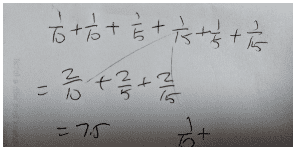 1/10 + 1/10 + 1/5 + 1/15 + 1/5 + 1/15
= 2/10 + 2/5 + 2/15
= 7.5 1/10 +